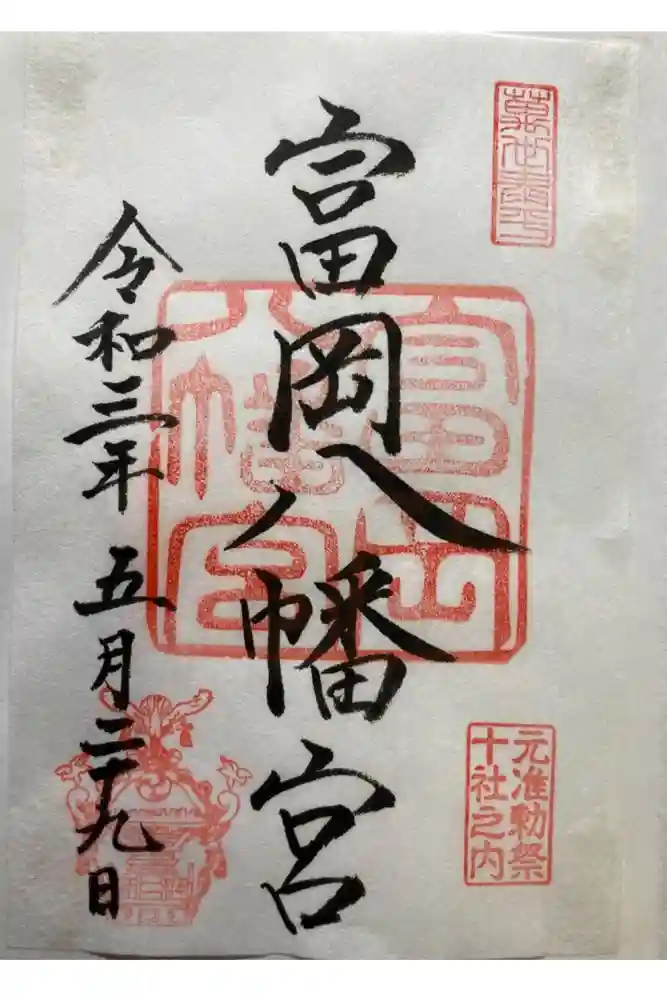 富岡八幡宮
令和三年 五月二十九日
富岡
八幡宮
元准勅祭
十社之内